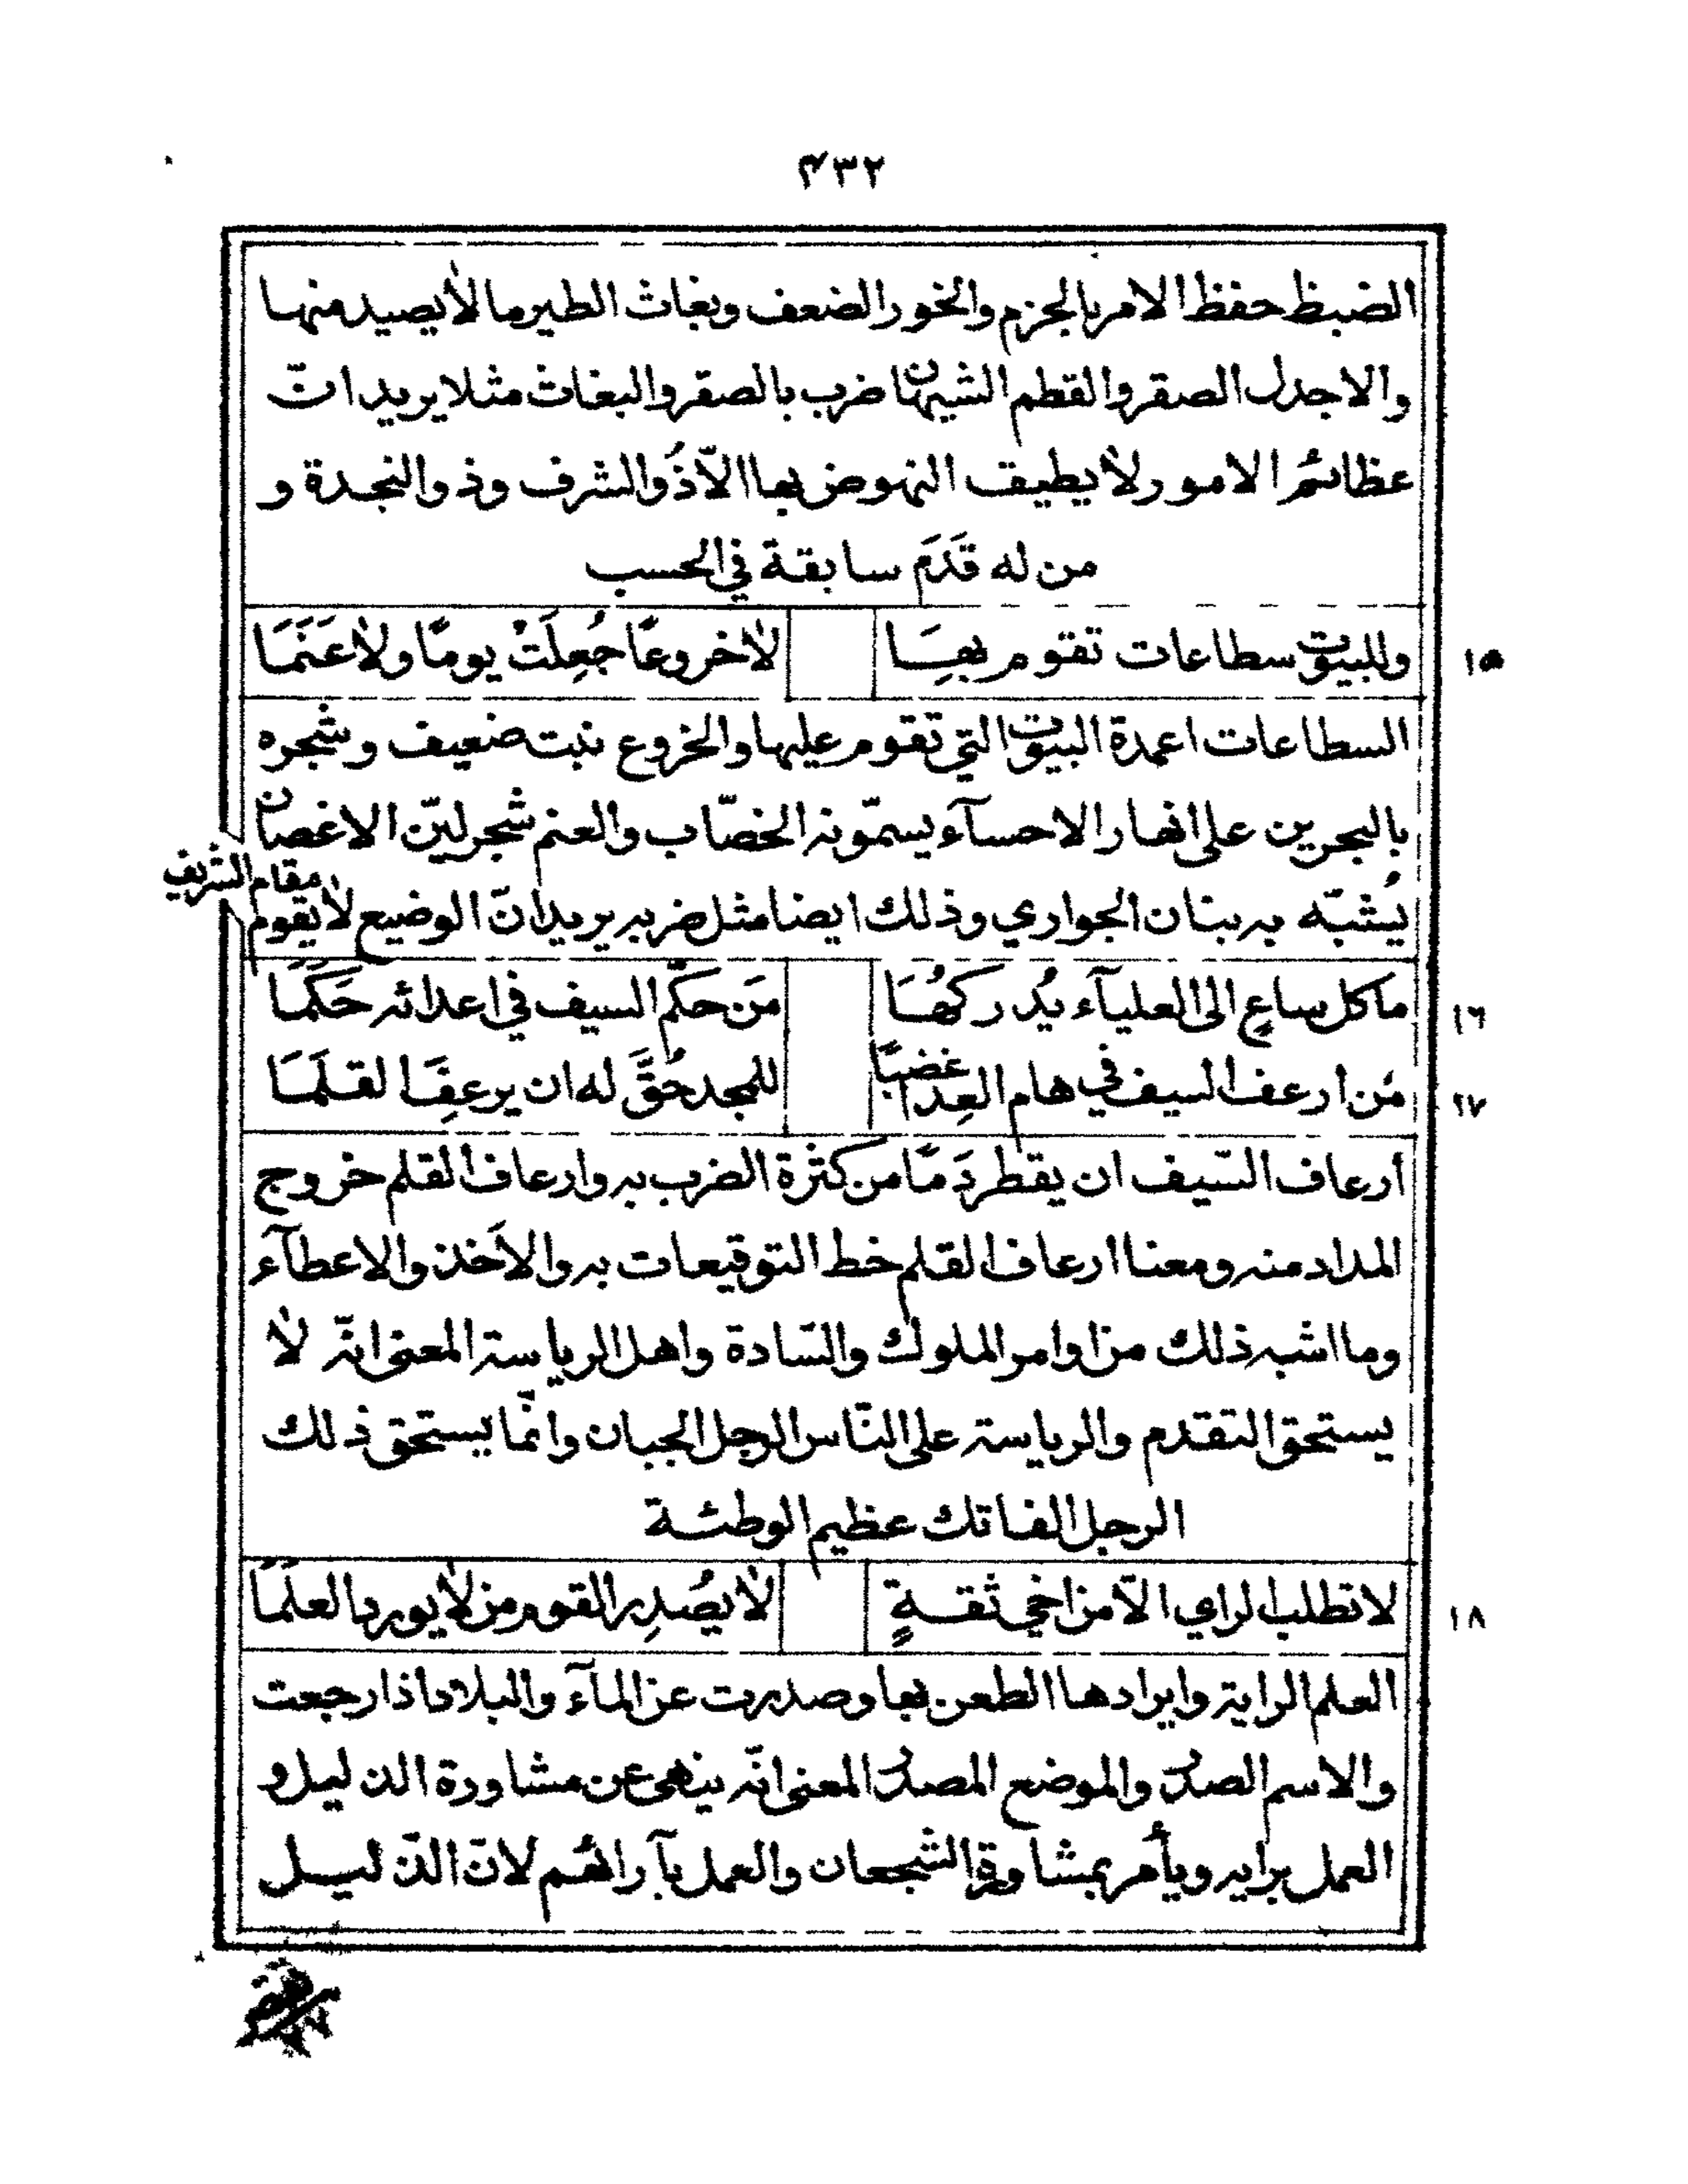 ٤٣٢
الضبظ حفظ الامر بالجزم والخور الضعف وبغاث الطير ما لا يصيد منها
والاجدل الصقر والقطم الشيهان ضرب بالصقر والبغاث مثلا يريد انّ
عظائم الامور لا يطيق النهوض بها الّا ذُو الشرف وذو النجدة و
من له قَدَمَ سابقة في الحسب
١٥ وللبيوت سطاعات تقوم بهِا لا خروعًا جُعِلَتْ يومًا ولا عَنَمَا
السطاعات اعمدة البيوت التي تقوم عليها والخروع نبت ضعيف وشجره
بالبحرين على انهار الاحسآء يسمّونه الخصّاب والعنم شجر ليّن الاغصان
يُشبّه به بنان الجواري وذلك ايضا مثل ضربه يريد انّ الوضيع لا يقوم
مقام الشريف
١٦ ما كل ساعٍ الى العليآء يُدركهُا مَن حكّم السيف في اعدائه حَكَمَا
١٧ مَن ارعف السيف في هام العِدا غضبًا للمجد حُقَّ له ان يرعفِا لقلَمَا
ارعاف السّيف ان يقطر دَمًا من كثرة الضرب به وارعاف القلم خروج
المداد منه ومعنا ارعاف القلم خط التوقيعات به والاَخذ والاعطآء
وما اشبه ذلك من اوامر الملوك والسّادة واهل الرياسة المعنى انّه لا
يستحق التقدم والرياسة على النّاس الرجل الجبان وانّما يستحق ذلك
الرجل الفاتك عظيم الوطئة
١٨ لا تطلب الراي الّا من اخي ثقةٍ لا يُصْدِر القوم من لا يورد العلَمَا
العلم الراية وايرادها الطعن بها وصدرت عن المآء والبلاد اذا رجعت
والاسم الصدَر والموضع المصدَر المعنى انّه ينهى عن مشاورة الذليل و
العمل برايه ويأمر بمشاورة الشجعان والعمل بآرائهم لانّ الذّليل